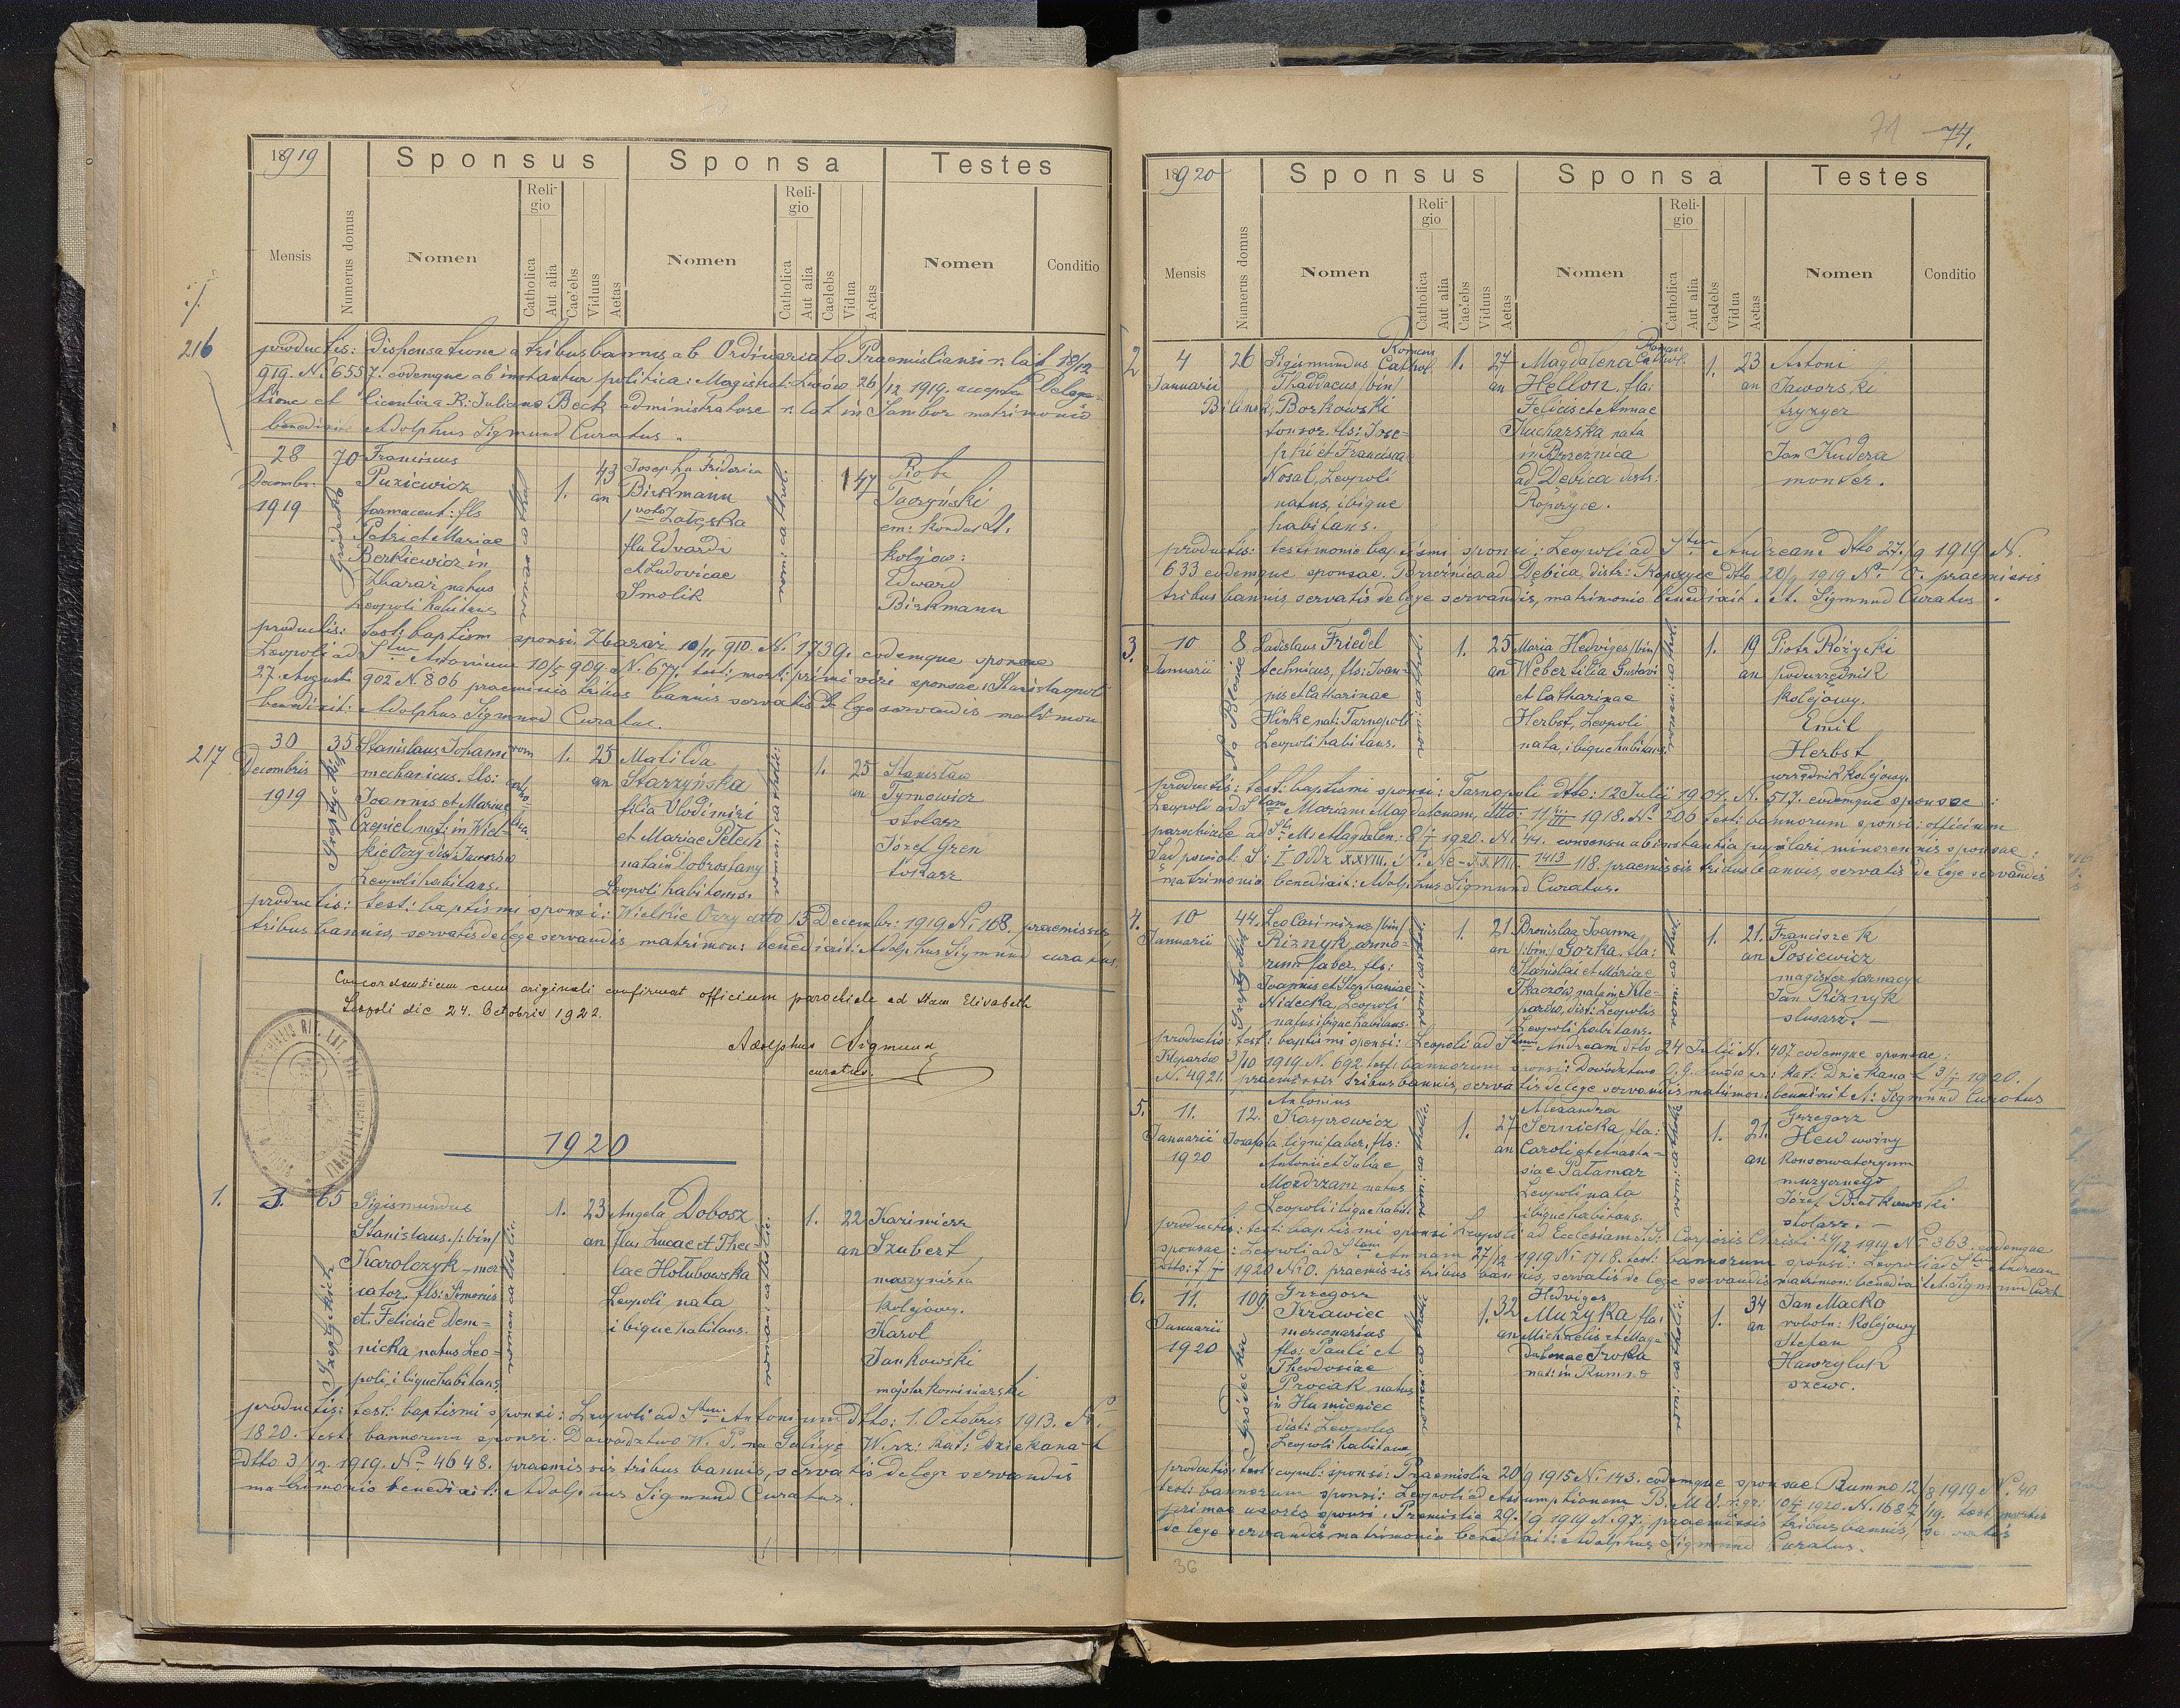 1919
Sponsus
Sponsa
Testes
Mensis
Numerus domus
Nomen
Religio
Catholica
Aut alia
Caelebs
Viduus
Aetas
Nomen
Religio
Catholica
Aut alia
Caelebs
Vidua
Aetas
Nomen
Conditio
216
productis: dispensatione a tribus bannis ab Ordinariato Praemisliensi r. lat 18/12
919. N. 6557. eodemque ab instantia politica: Magistrat: Lwów 26/12 1919. accepta Delega-
tione et licentia a R: Juliano Beck administratore r. lat in Sambor matrimonio
benedixit Adolphus Sigmund Curatus.
28
Decembr:
1919
70
Gródecka
Franciscus
Puziewicz
farmaceut: fls
Petri et Mariae
Berkiewicz in
Zbaraż natus
Leopoli habitans
romano cathol
1.
43
an
Josepha Friderica
Birkmann
1 voto Załęska
fla Edvardi
et Ludovicae
Smolik
rom: cathol:
1
47
Piotr
Taczyński
em: kondukt.
kolejow:
Edward
Birkmann
productis: test: baptism sponsi Zbaraż 10/11 910. N. 1739. eodemque sponsae
Leopoli ad S. Antonium 10/5 909. N. 677. test: mort: primi viri sponsae: Stanislaopoli
27 Augusti 902 N. 806 praemissis tribus bannis servatis de lege servandis matrimon
benedixit: Adolphus Sigmund Curatus.
217
30
Decembris
1919
35
Szeptyckich
Stanislaus Johann
mechanicus. fls:
Joannis et Mariae
Czepiel nat: in Wiel-
kie Oczy dist: Jaworów
Leopoli habitans.
rom
catho
lica
1.
25
an
Matilda
Starzyńska
filia Vlodimiri
et Mariae Petech
nata in Dobrostany
Leopoli habitans.
romani: catholic:
1.
25
an
Stanisław
Tymowicz
stolarz
Józef Gren
tokarz
productis: test: baptismi sponsi: Wielkie Oczy dtto 15 Decembr: 1919 N. 168. praemissis
tribus bannis, servatis de lege servandis matrimon: benedixit: Adolphus Sigmund curatus.
Concordantiam cum originali confirmat officium parochiale ad Stam Elisabeth
Leopoli die 24. Octobris 1922.
Adolphus Sigmund
curatus.
1920
1.
3.
65
Szeptyckich
Sigismundus
Stanislaus /:bin/
Karolczyk mer-
cator, fls: Simonis
et Feliciae Dem-
nicka natus Leo-
poli, ibique habitans
roman catholic:
1.
23
an
Angela Dobosz
fla: Lucae et Thec-
lae Hołubowska
Leopoli nata
ibique habitans.
romani: catholic:
1.
22
an
Kazimierz
Szubert
maszynista
kolejowy.
Karol
Jankowski
majster kominiarski
productis: test: baptismi sponsi: Leopoli ad S. Antonium dtto: 1. Octobris 1913. N.
1820. test: bannorum sponsi: Dowództwo W. P. na Galicye W. rz: kat: Dziekanat
dtto 3/12. 1919. N. 4648. praemissis tribus bannis, servatis de lege servandis
matrimonio benedixit: Adolphus Sigmund Curatus.
71 74.
1920
Sponsus
Sponsa
Testes
Mensis
Numerus domus
Nomen
Religio
Catholica
Aut alia
Caelebs
Viduus
Aetas
Nomen
Religio
Catholica
Aut alia
Caelebs
Vidua
Aetas
Nomen
Conditio
2
4
Januarii
26
Bilinsk.
Sigismundus
Thaddaeus /bin/
Borkowski
tonsor. fls: Jose-
phi et Francisca
Nosal, Leopoli
natus, ibique
habitans.
Roman
Cathol.
1.
27
an
Magdalena
Hellon, fla:
Felicis et Annae
Kucharska nata
in Brzeznica
ad Debica distr:
Ropczyce.
Roman
Cathol.
1.
23
an
Antoni
Jaworski
fryzyer
Jan Kudera
monter.
productis: testimonio baptismi sponsi: Leopoli ad S. Andream dtto 27./9 1919 N.
633 eodemque sponsae. Brzeźnica ad Dębica, distr: Ropczyce dtto 20/9 1919 N. praemissis
tribus bannis, servatis de lege servandis, matrimonio benedixit. A. Sigmund Curatus.
3.
10
Januarii
8
Na Błonie
Ladislaus Friedel
technicus, fls: Joan-
nis et Catharinae
Hinke nat: Tarnopoli
Leopoli habitans.
rom: cathol:
1.
25
an
Maria Hedviges /bin/
Weber filia Gustavi
et Catharinae
Herbst, Leopoli
nata, ibique habitans.
romani: cathol
1.
19
an
Piotr Różycki
podurzędnik
kolejowy.
Emil
Herbst
urzędnik kolejowy.
productis: test: baptismi sponsi: Tarnopoli dtto: 12 Julii 1904. N. 517. eodemque sponsae:
Leopoli ad Stam Mariam Magdalenam, dtto: 11/III 1918. N. 206 test: bannorum sponsi: officium
parochiale ad S. M. Magdalen. 8/I 1920. N. 44. consensu ab instantia pupilari minorennis sponsae:
Sąd powiat: S: I Oddz XXVIII. N. Nc-XXVIII-1413/118. praemissis tribus bannis, servatis de lege servandis
matrimonio benedixit: Adolphus Sigmund Curatus.
4.
10
Januarii
44.
Szeptyckich
Leo Casimirus /bin/
Riznyk, armo-
rum faber, fls:
Joannis et Stephaniae
Nidecka, Leopoli
natus ibique habitans.
1.
21.
an
Bronislaa Joanna
/:bin/ Gorka, fla:
Stanislai et Mariae
Tkaczów, nata in Kle-
parów, dist: Leopolis
Leopoli habitans.
rom: cathol
1.
21.
an
Franciszek
Posiewicz
magister farmacyi
Jan Riznyk
slusarz. —
productis: test: baptismi sponsi: Leopoli ad S. Andream dtto 24 Julii N. 407 eodemque sponsae:
Kleparów 3/10 1919 N. 692. test: bannorum sponsi: Dowództwo O. G. Lwów rz: kat: Dziekanat 3/I 1920.
N. 4921. praemissis tribus bannis, servatis de lege servandis matrimon: benedixit A: Sigmund Curatus
5.
11.
Januarii
1920
12.
Jozafata
Antonius
Kasprowicz
lignifaber, fls:
Antonii et Juliae
Mozdrzan natus
Leopoli ibique habit:
rom: catholic.
1.
27
an
Alexandra
Sernicka, fla:
Caroli et Anasta-
siae Patamar
Leopoli nata
ibique habitans.
rom: catholic
1.
21.
an
Grzegorz
Hew woźny
Konserwatoryum
muzycznego
Józef Białkowski
stolarz. —
productis: test: baptismi sponsi Leopoli ad Ecclesiam S.S. Corporis Christi 29/12 1919 N. 363. eodemque
sponsae: Leopoli ad Stam Annam 27/12 1919 N. 1718. test: bannorum sponsi: Leopoli ad S. Andream
dtto: 7/I 1920 N. 0. praemissis tribus bannis, servatis de lege servandis matrimon: benedixit A. Sigmund Curat
6.
11.
Januarii
1920
109
Gródecka
Grzegorz
Krawiec
mercenarius
fls: Pauli et
Theodosiae
Procak natus
in Humieniec
dist: Leopolis
Leopoli habitans
1.
32
an
Hedviges
Muzyka fla:
Michaelis et Mag-
dalenae Sroka
nat: in Rumno
1.
34
an
Jan Macko
robotn: kolejowy
Stefan
Hawryluk
szewc.
productis: test: copul: sponsi: Praemislia 20/9 1915 N. 143. eodemque sponsae Rumno 12/8 1919 N. 40
test: bannorum sponsi: Leopoli ad Assumptionem B. M. V. r. gr: 10/I 1920. N. 1687/19. test: mortis
primae uxoris sponsi: Premislia 29./9 1919 N. 97. praemissis tribus bannis, servatis
de lege servandis matrimonio benedixit: Adolphus Sigmund Curatus.
36